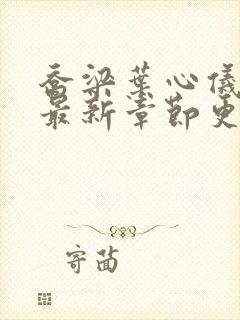 乔梁叶心仪
最新章节更
寄茴